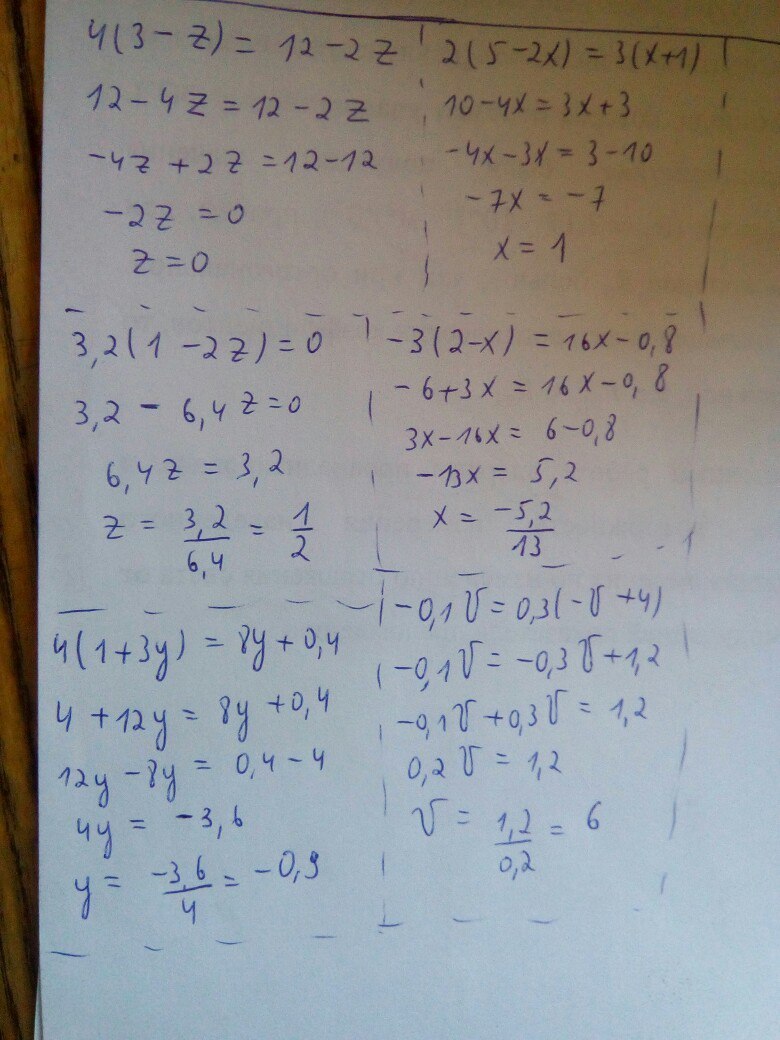 4(3-z) = 12-2z
12-4z = 12-2z
-4z+2z = 12-12
-2z = 0
z = 0
2(5-2x) = 3(x+1)
10-4x = 3x+3
-4x-3x = 3-10
-7x = -7
x = 1
3,2(1-2z) = 0
3,2 - 6,4z = 0
6,4z = 3,2
z = 3,2/6,4 = 1/2
-3(2-x) = 16x-0,8
-6+3x = 16x-0,8
3x-16x = 6-0,8
-13x = 5,2
x = -5,2/13
4(1+3y) = 8y+0,4
4+12y = 8y+0,4
12y-8y = 0,4-4
4y = -3,6
y = -3,6/4 = -0,9
-0,1v = 0,3(-v+4)
-0,1v = -0,3v+1,2
-0,1v+0,3v = 1,2
0,2v = 1,2
v = 1,2/0,2 = 6